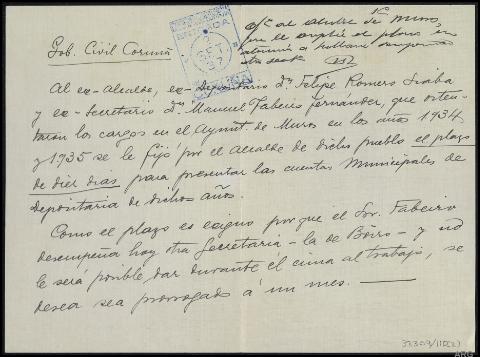 Gob. Civil Coruña
Of. al alcalde de Muros,
que se amplíe el plazo en
SET
37
Al ex-Alcalde, ex-Depositario Dn. Felipe Romero
y ex-Secretario Dn. Manuel Fabeiro Fernández, que osten-
taron los cargos en el Ayunt. de Muros en los años 1934
y 1935 se le fijó por el Alcalde de dicho pueblo el plazo
de diez días para presentar las cuentas Municipales de
Depositaria de dichos años.
Como el plazo es exiguo porque el Sr. Fabeiro
desempeña hoy otra Secretaria - la de Boiro - y no
le será posible dar durante él cima al trabajo, se
desea sea prorrogado á un mes.
ARG